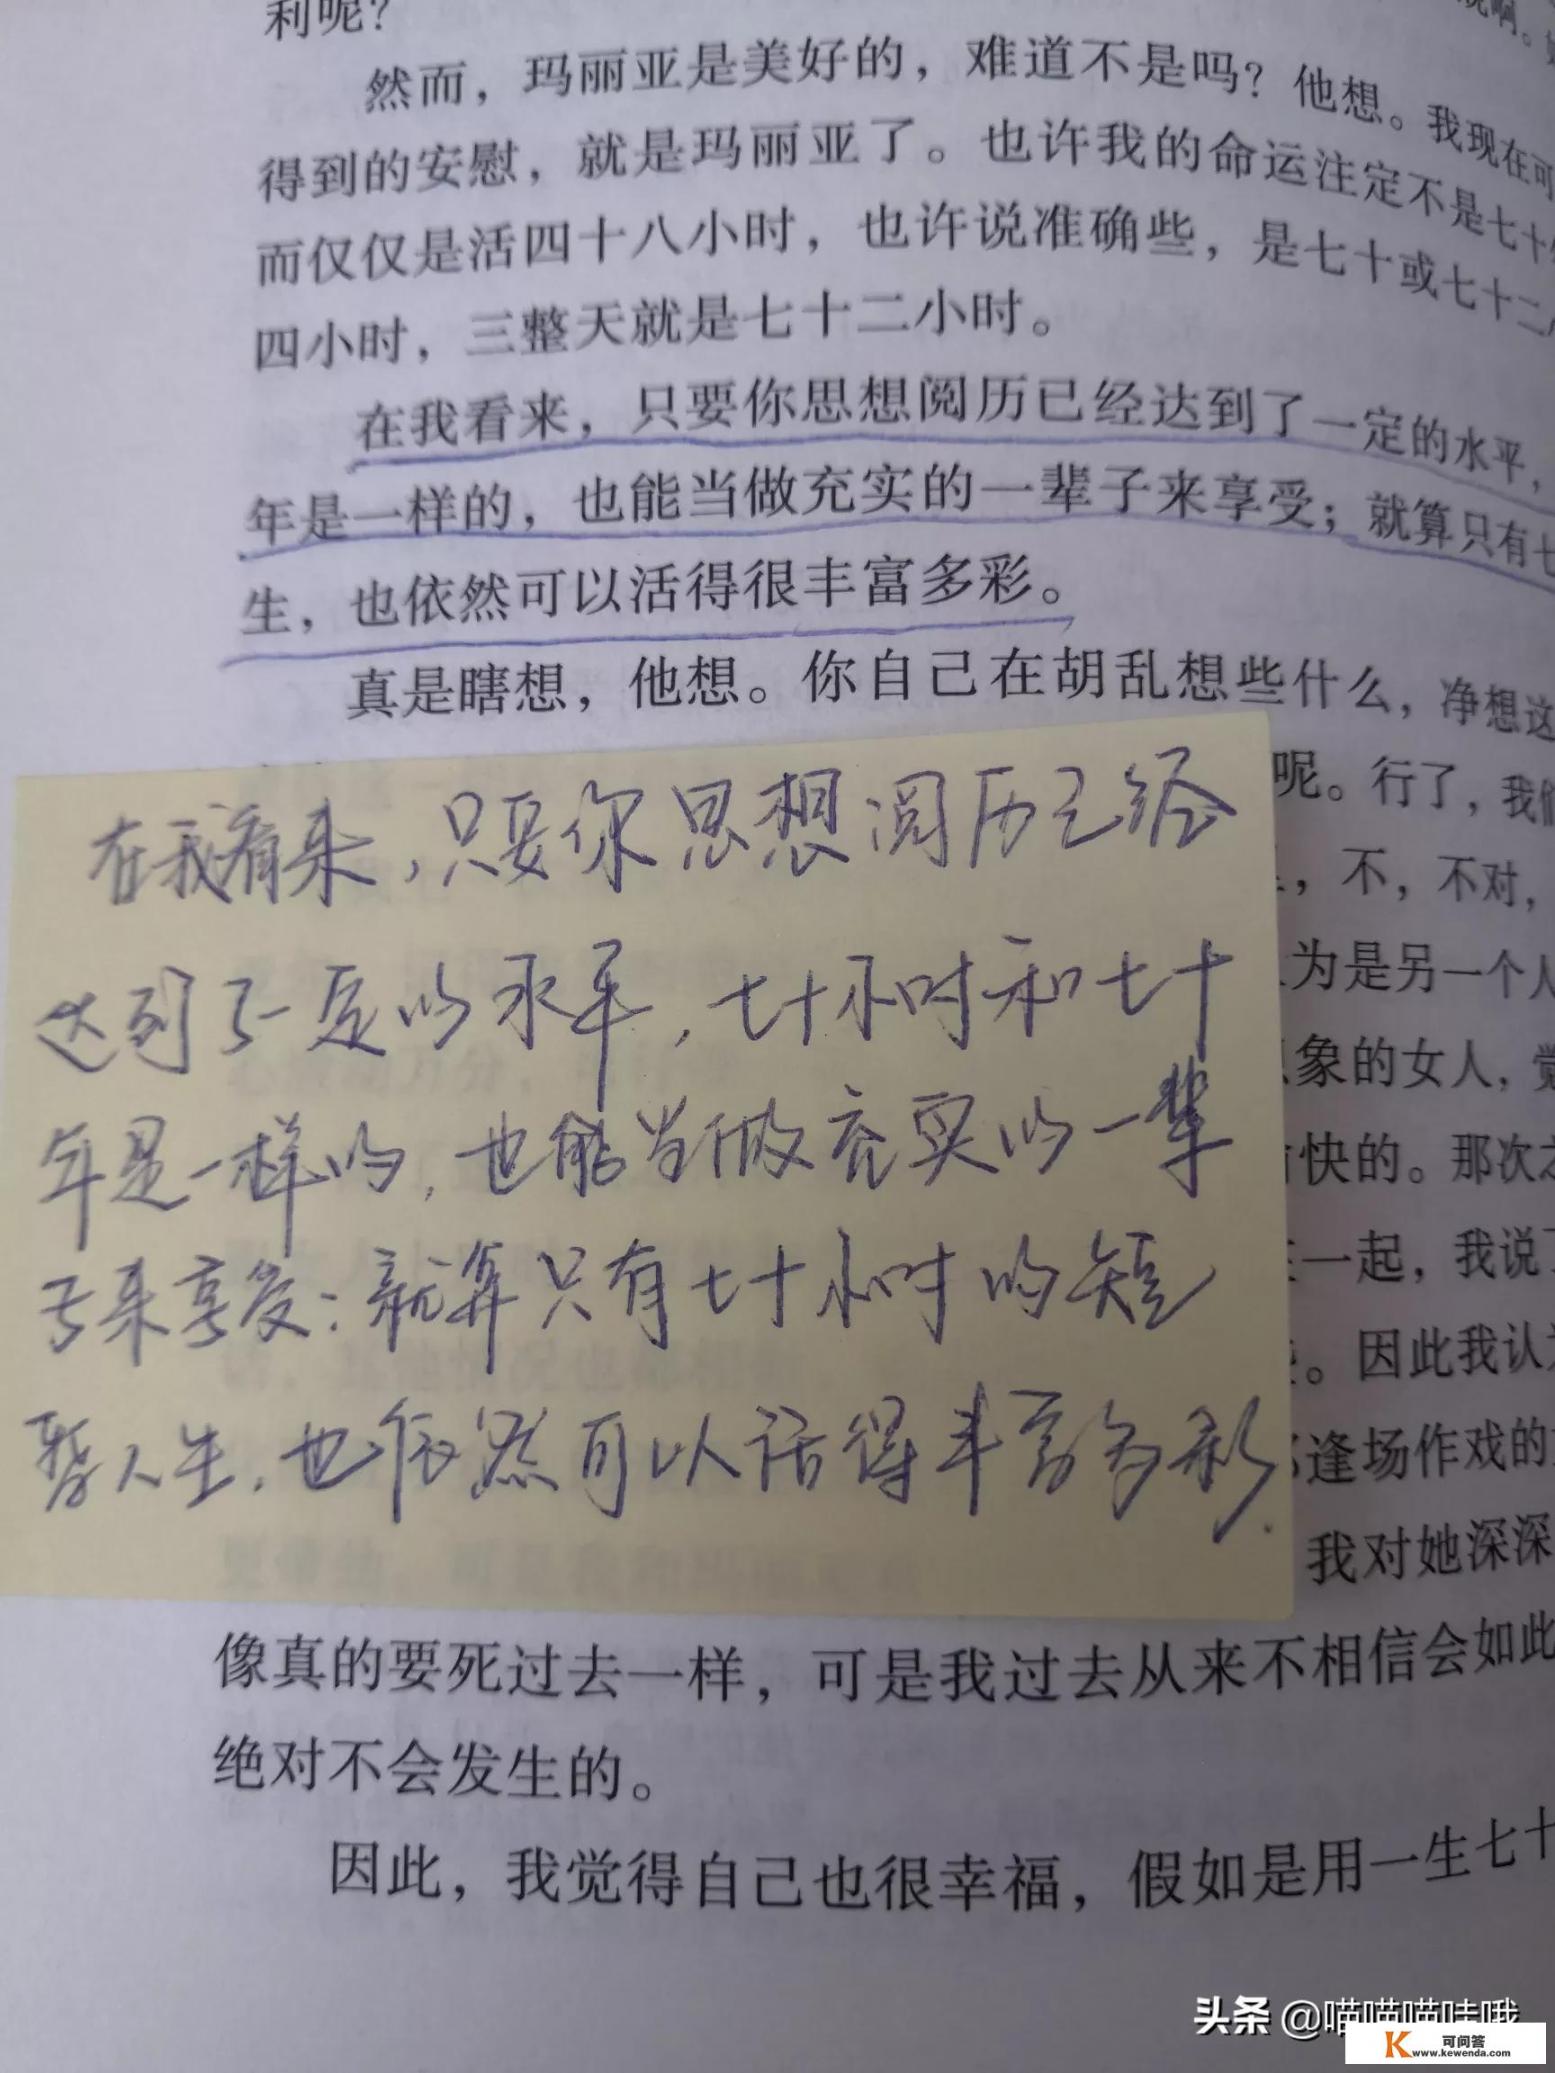 利呢？
然而，玛丽亚是美好的，难道不是吗？他想。我现在可
得到的安慰，就是玛丽亚了。也许我的命运注定不是七十
而仅仅是活四十八小时，也许说准确些，是七十或七十二
四小时，三整天就是七十二小时。
在我看来，只要你思想阅历已经达到了一定的水平，
年是一样的，也能当做充实的一辈子来享受；就算只有七
生，也依然可以活得很丰富多彩。
真是瞎想，他想。你自己在胡乱想些什么，净想这
呢。行了，我们
，不，不对，
为是另一个人
象的女人，觉
快的。那次
一起，我说
。因此我认
逢场作戏的
我对她深深
在我看来，只要你思想阅历已经
达到了一定的水平，七十小时和七十
年是一样的，也能当做充实的一辈
子来享受；就算只有七十小时的短
暂人生，也依然可以活得丰富多彩.
像真的要死过去一样，可是我过去从来不相信会如此
绝对不会发生的。
因此，我觉得自己也很幸福，假如是用一生七十
头条 @喵喵喵哇哦
K 可问答
www.kewenda.com